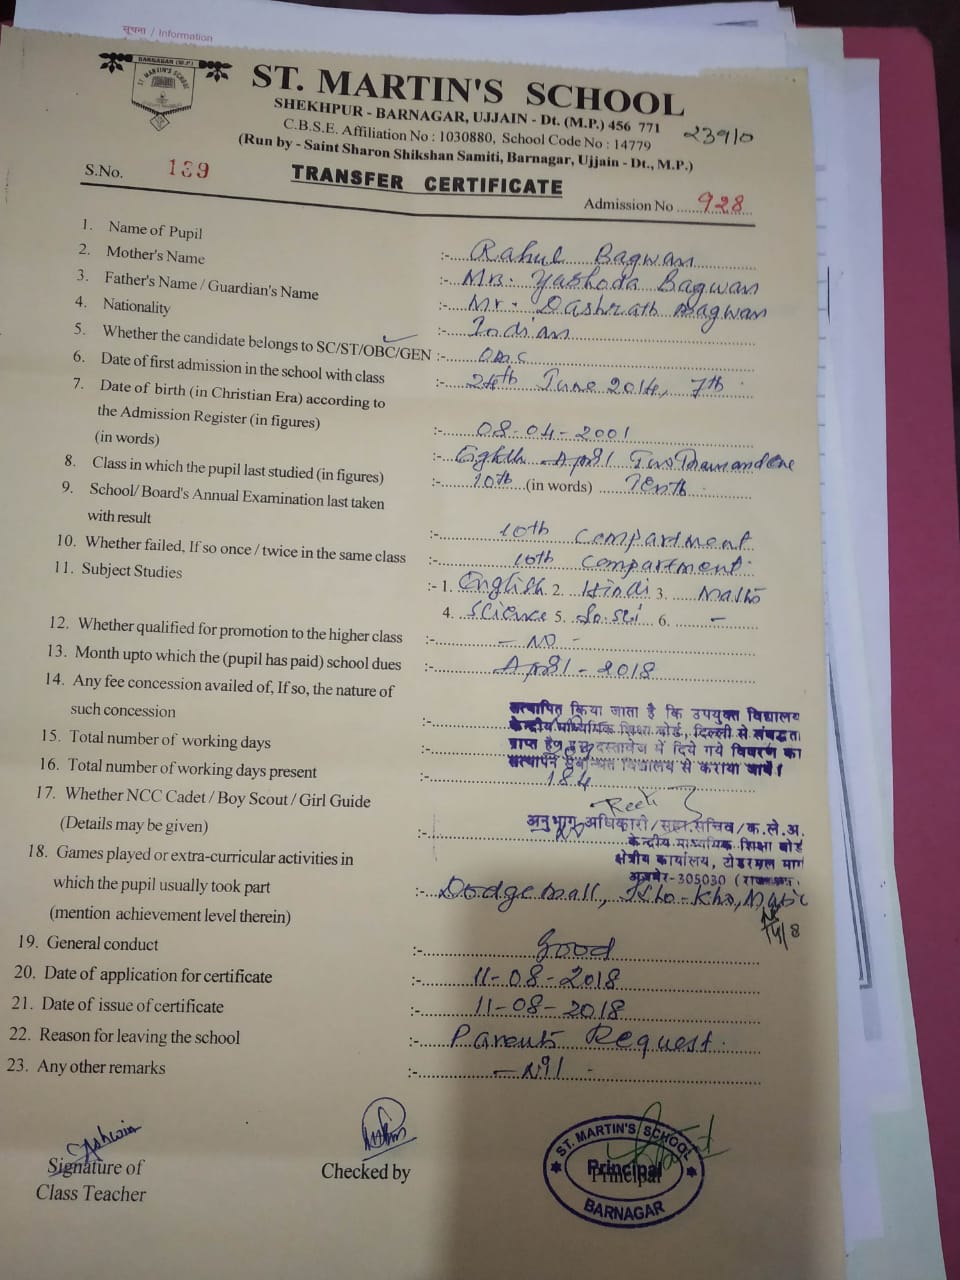 सूचना / Information
BARNAGAR (M.P.)
ST. MARTIN'S SCHOOL
ST. MARTIN'S SCHOOL
SHEKHPUR - BARNAGAR, UJJAIN - Dt. (M.P.) 456 771
C.B.S.E. Affiliation No : 1030880, School Code No : 14779
23910
(Run by - Saint Sharon Shikshan Samiti, Barnagar, Ujjain - Dt., M.P.)
S.No. 139
TRANSFER CERTIFICATE
Admission No ..... 928
1. Name of Pupil :- Rahul Bagwan
2. Mother's Name :- Mrs. Yashoda Bagwan
3. Father's Name / Guardian's Name :- Mr. Dashrath Bagwan
4. Nationality :- Indian
5. Whether the candidate belongs to SC/ST/OBC/GEN :- OBC
6. Date of first admission in the school with class :- 24th June 2014, 7th
7. Date of birth (in Christian Era) according to
the Admission Register (in figures) :- 08-04-2001
(in words) :- Eighth April Two Thousand One
8. Class in which the pupil last studied (in figures) :- 10th (in words) Tenth
9. School/ Board's Annual Examination last taken
with result :- 10th Compartment
10. Whether failed, If so once / twice in the same class :- 10th Compartment
11. Subject Studies :- 1. English 2. Hindi 3. Maths
4. Science 5. So.Sci 6. -
12. Whether qualified for promotion to the higher class :- - NO -
13. Month upto which the (pupil has paid) school dues :- April - 2018
14. Any fee concession availed of, If so, the nature of
such concession :-
सत्यापित किया जाता है कि उपयुक्त विद्यालय
केन्द्रीय माध्यमिक शिक्षा बोर्ड, दिल्ली से संबद्धता
प्राप्त है, दस्तावेज में दिये गये विवरण का
सत्यापन विद्यालय से कराया जावे।
15. Total number of working days :-
16. Total number of working days present :- 184
17. Whether NCC Cadet / Boy Scout / Girl Guide
(Details may be given) :-
अनुभाग अधिकारी/सहा.सचिव/क.ले.अ.
केन्द्रीय माध्यमिक शिक्षा बोर्ड
क्षेत्रीय कार्यालय, टोडरमल मार्ग
अजमेर-305030
18. Games played or extra-curricular activities in
which the pupil usually took part :- Dodge ball, Kho-Kho, Music
(mention achievement level therein)
19. General conduct :- Good
20. Date of application for certificate :- 11-08-2018
21. Date of issue of certificate :- 11-08-2018
22. Reason for leaving the school :- Parents Request.
23. Any other remarks :- - Nil -
Ashwin
Signature of
Class Teacher
Checked by
ST. MARTIN'S SCHOOL
Principal
Principal
BARNAGAR